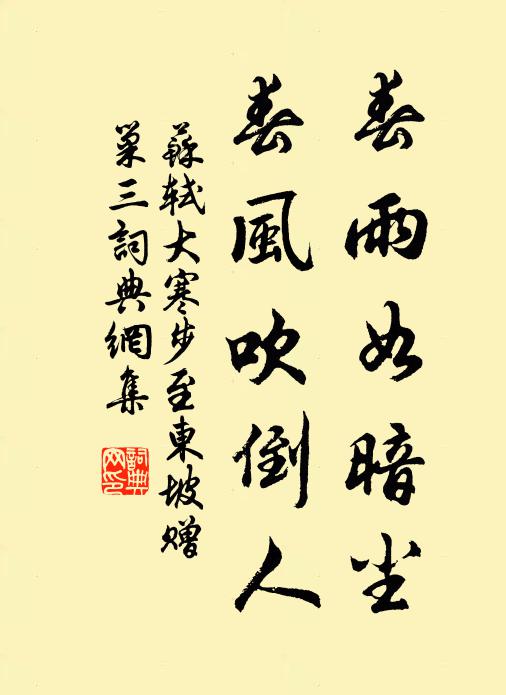 春雨如暗尘
春風吹倒人
蘇軾大寒步至東坡贈
巢三詞典網集
詞典
网印